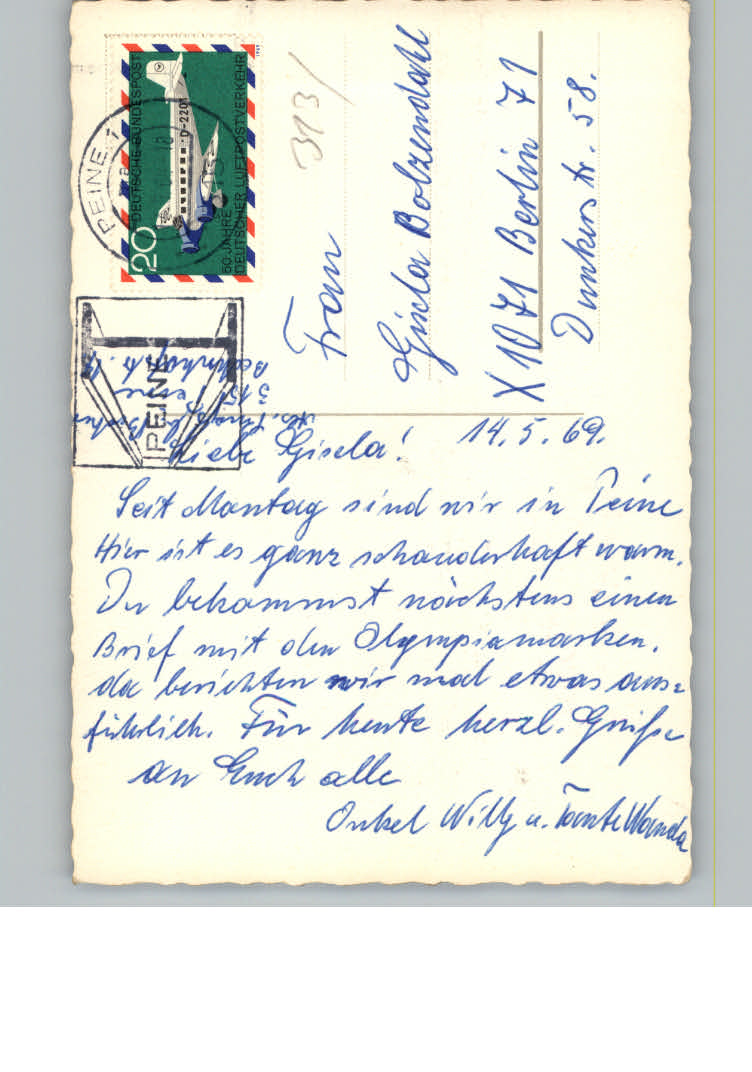 DEUTSCHE BUNDESPOST
20
50 JAHRE
DEUTSCHER LUFTPOSTVERKEHR
1969
D-2201
PEINE 1
PEINE
313/
Frau
Gisela Bolzendahl
X 1071 Berlin 71
Dunkerstr. 58.
315
Peine
Bahnhofstr.
14. 5. 69.
Liebe Gisela!
Seit Montag sind wir in Peine
Hier ist es ganz schauderhaft warm.
Du bekommst nächstens einen
Brief mit den Olympiamarken.
da berichten wir mal etwas aus=
führlich. Für heute herzl. Grüße
an Euch alle
Onkel Willy u. Tante Wanda